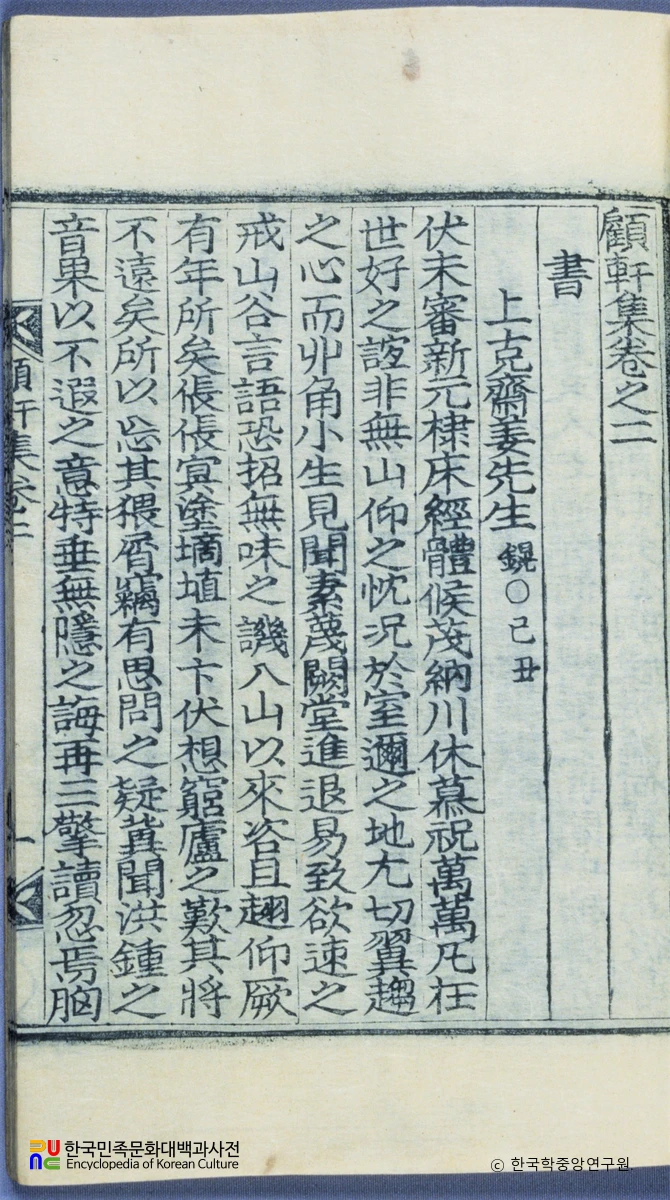 顧軒集卷之二
書
上克齋姜先生 鎤○己丑
伏未審新元棣床經體候茂納川休慕祝萬萬凡在
世好之誼非無山仰之忱况於室邇之地尤切翼趨
之心而丱角小生見聞素蔑闕堂進退易致欲速之
戒山谷言語恐招無味之譏入山以來咨且趨仰厥
有年所矣倀倀冥塗擿埴未卞伏想窮廬之歎其將
不遠矣所以忘其猥屑竊有思問之疑冀聞洪鍾之
音果以不遐之意特垂無隱之誨再三擎讀忽焉胸
顧軒集卷二
一
한국민족문화대백과사전
Encyclopedia of Korean Culture
© 한국학중앙연구원